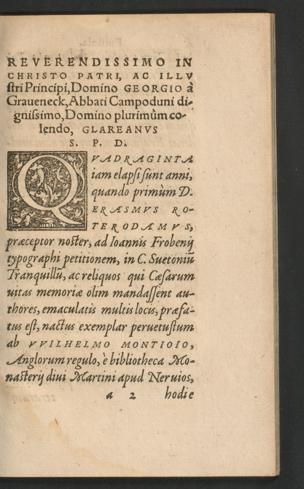 REVERENDISSIMO IN
CHRISTO PATRI, AC ILLV
stri Principi, Domino GEORGIO à
Graueneck, Abbati Campoduni di-
gnissimo, Domino plurimùm co-
lendo, GLAREANVS
S. P. D.
QVADRAGINTA
iam elapsi sunt anni,
quando primùm D.
ERASMVS RO-
TERODAMVS,
præceptor noster, ad Ioannis Frobenij
typographi petitionem, in C. Suetoniũ
Tranquillũ, ac reliquos qui Cæsarum
uitas memoriæ olim mandassent au-
thores, emaculatis multis locus, præfa-
tus est, nactus exemplar peruetustum
ab VVILHELMO MONTIOIO,
Anglorum regulo, è bibliotheca Mo-
nasterij diui Martini apud Neruios,
a 2 hodie